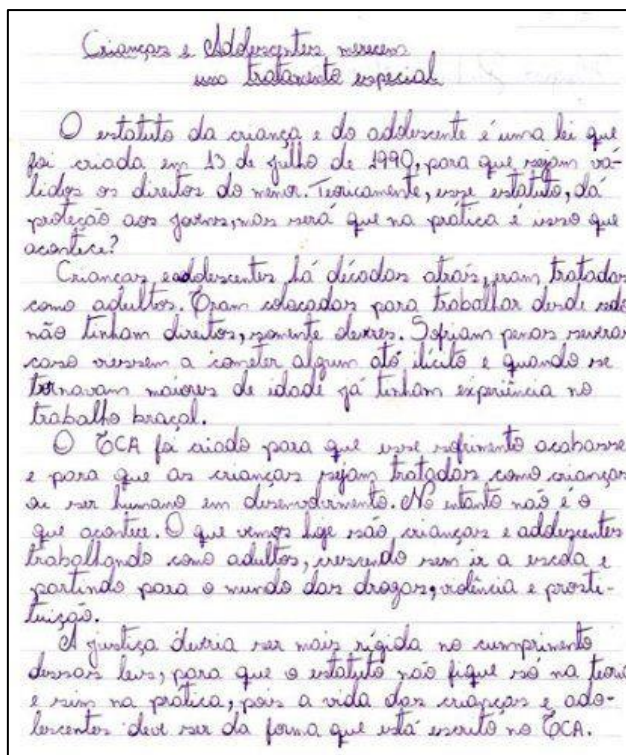 Crianças e Adolescentes merecem
um tratamento especial
O estatuto da criança e do adolescente é uma lei que
foi criada em 13 de julho de 1990, para que sejam vá-
lidos os direitos do menor. Teoricamente, esse estatuto, dá
proteção aos jovens, mas será que na prática é isso que
acontece?
Crianças e adolescentes há décadas atrás, eram tratadas
como adultos. Eram colocadas para trabalhar desde cedo
não tinham direitos, somente deveres. Sofriam penas severas
caso viessem a cometer algum ato ilícito e quando se
tornavam maiores de idade já tinham experiência no
trabalho braçal.
O ECA foi criado para que esse sofrimento acabasse
e para que as crianças sejam tratadas como crianças
ou ser humano em desenvolvimento. No entanto não é o
que acontece. O que vemos hoje são crianças e adolescentes
trabalhando como adultos, crescendo sem ir a escola e
partindo para o mundo das drogas, violência e prosti-
tuição.
A justiça deveria ser mais rígida no cumprimento
dessas leis, para que o estatuto não fique só na teoria
e sim na prática, pois a vida das crianças e ado-
lescentes deve ser da forma que está escrito no ECA.